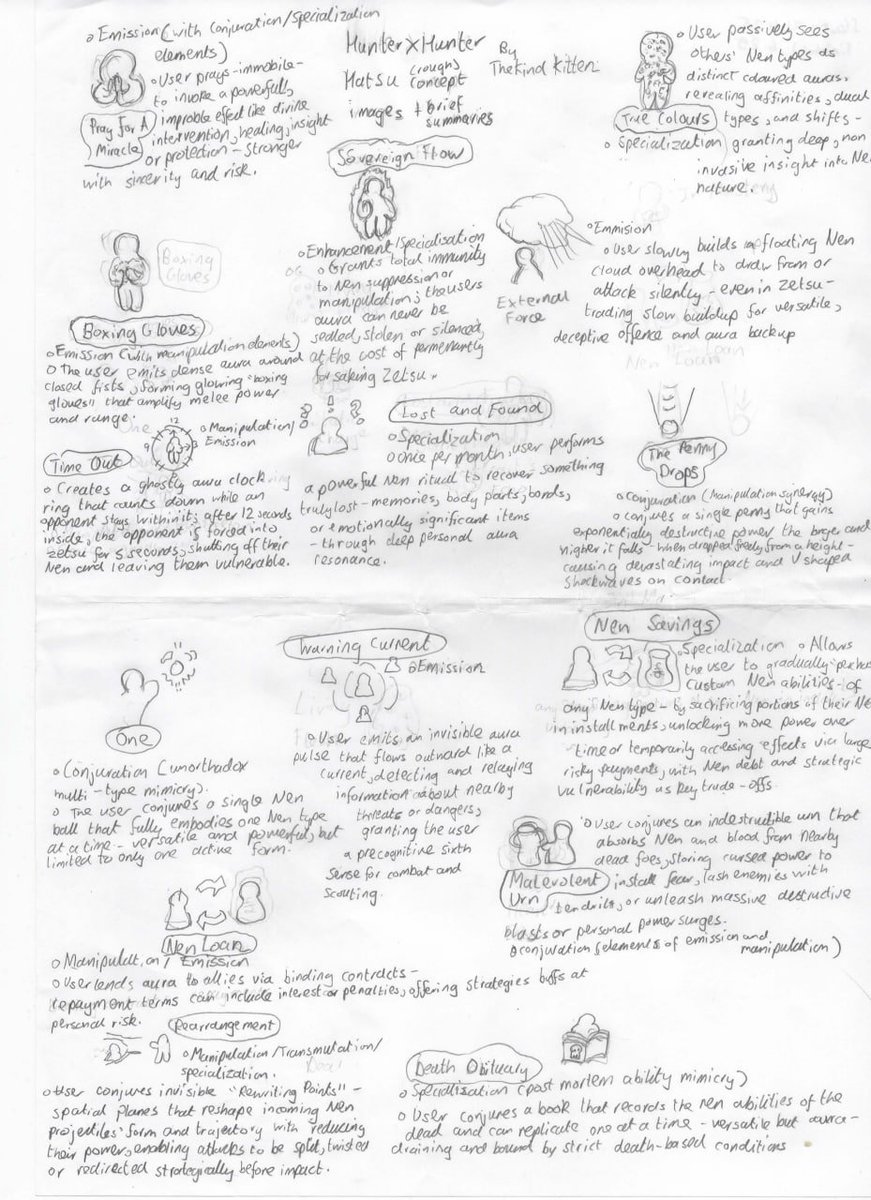 Hunter x Hunter
Hatsu (rough) Concept
images + brief
summaries
By
TheKind Kitten
o Emission (with Conjuration/Specialization
elements)
o User prays-immobile-
to invoke a powerful,
improbable effect like divine
intervention, healing, insight
or protection - stronger
with sincerity and risk.
Pray For A
Miracle
o User passively sees
others' Nen types as
distinct coloured auras,
revealing affinities, dual
types, and shifts -
True Colours
o Specialization granting deep, non
invasive insight into Ne
nature.
Sovereign Flow
o Enhancement/Specialisation
o Grants total immunity
to Nen suppression or
manipulation; the users
aura can never be
sealed, stolen or silenced,
at the cost of permenantly
forsaking Zetsu.
External
Force
o Emmision
o User slowly builds a floating Nen
cloud overhead to draw from or
attack silently - even in Zetsu -
trading slow buildup for versatile,
deceptive offence and aura backup
Boxing
Gloves
Boxing Gloves
o Emission (with manipulation elements)
o The user emits dense aura around
closed fists, forming glowing "boxing
gloves" that amplify melee power
and range.
Time Out
12
9
3
o Manipulation/
Emission
o Creates a ghostly aura clock
ring that counts down while an
opponent stays within it; after 12 seconds
inside, the opponent is forced into
zetsu for 5 seconds, shutting off their
Nen and leaving them vulnerable.
? ! ? ?
Lost and Found
o Specialization
o Once per month, user performs
a powerful Nen ritual to recover something
truly lost - memories, body parts, bonds,
or emotionally significant items
- through deep personal aura
resonance.
Nen Loan
The Penny
Drops
o Conjuration (Manipulation synergy)
o Conjures a single penny that gains
exponentially destructive power the longer and
higher it falls - when dropped freely from a height -
causing devastating impact and V shaped
Shockwaves on contact.
One
o Conjuration (unorthodox
multi-type mimicry).
o The user conjures a single Nen
ball that fully embodies one Nen type
at a time - versatile and powerful, but
limited to only one active form.
Warning Current
o Emission
o User emits an invisible aura
pulse that flows outward like a
current, detecting and relaying
information about nearby
threats or dangers,
granting the user
a precognitive sixth
sense for combat and
Scouting.
Nen Savings
o Specialization o Allows
the user to gradually
Custom Nen abilities of
any Nen type - by sacrificing portions of their Ne
in installments, unlocking more power over
time or temporarily accessing effects via large
risky payments, with Nen debt and strategic
vulnerability as key trade-offs.
Malevolent
Urn
o User conjures an indestructible urn that
absorbs Nen and blood from nearby
dead foes, storing cursed power to
install fear, lash enemies with
tendrils, or unleash massive destructive
blasts or personal power surges.
o conjuration (elements of emission and
manipulation)
Nen Loan
o Manipulation / Emission
o User lends aura to allies via binding contracts -
repayment terms can include interest or penalties, offering strategies buffs at
personal risk.
Rearrangement
o Manipulation/Transmutation/
specialization.
o User conjures invisible "Rewriting Points" -
spatial planes that reshape incoming Nen
projectiles' form and trajectory with reducing
their power, enabling attacks to be split, twisted
or redirected strategically before impact.
Death Obituary
o Specialisation (post mortem ability mimicry)
o User conjures a book that records the nen abilities of the
dead and can replicate one at a time - versatile but aura-
draining and bound by strict death-based conditions